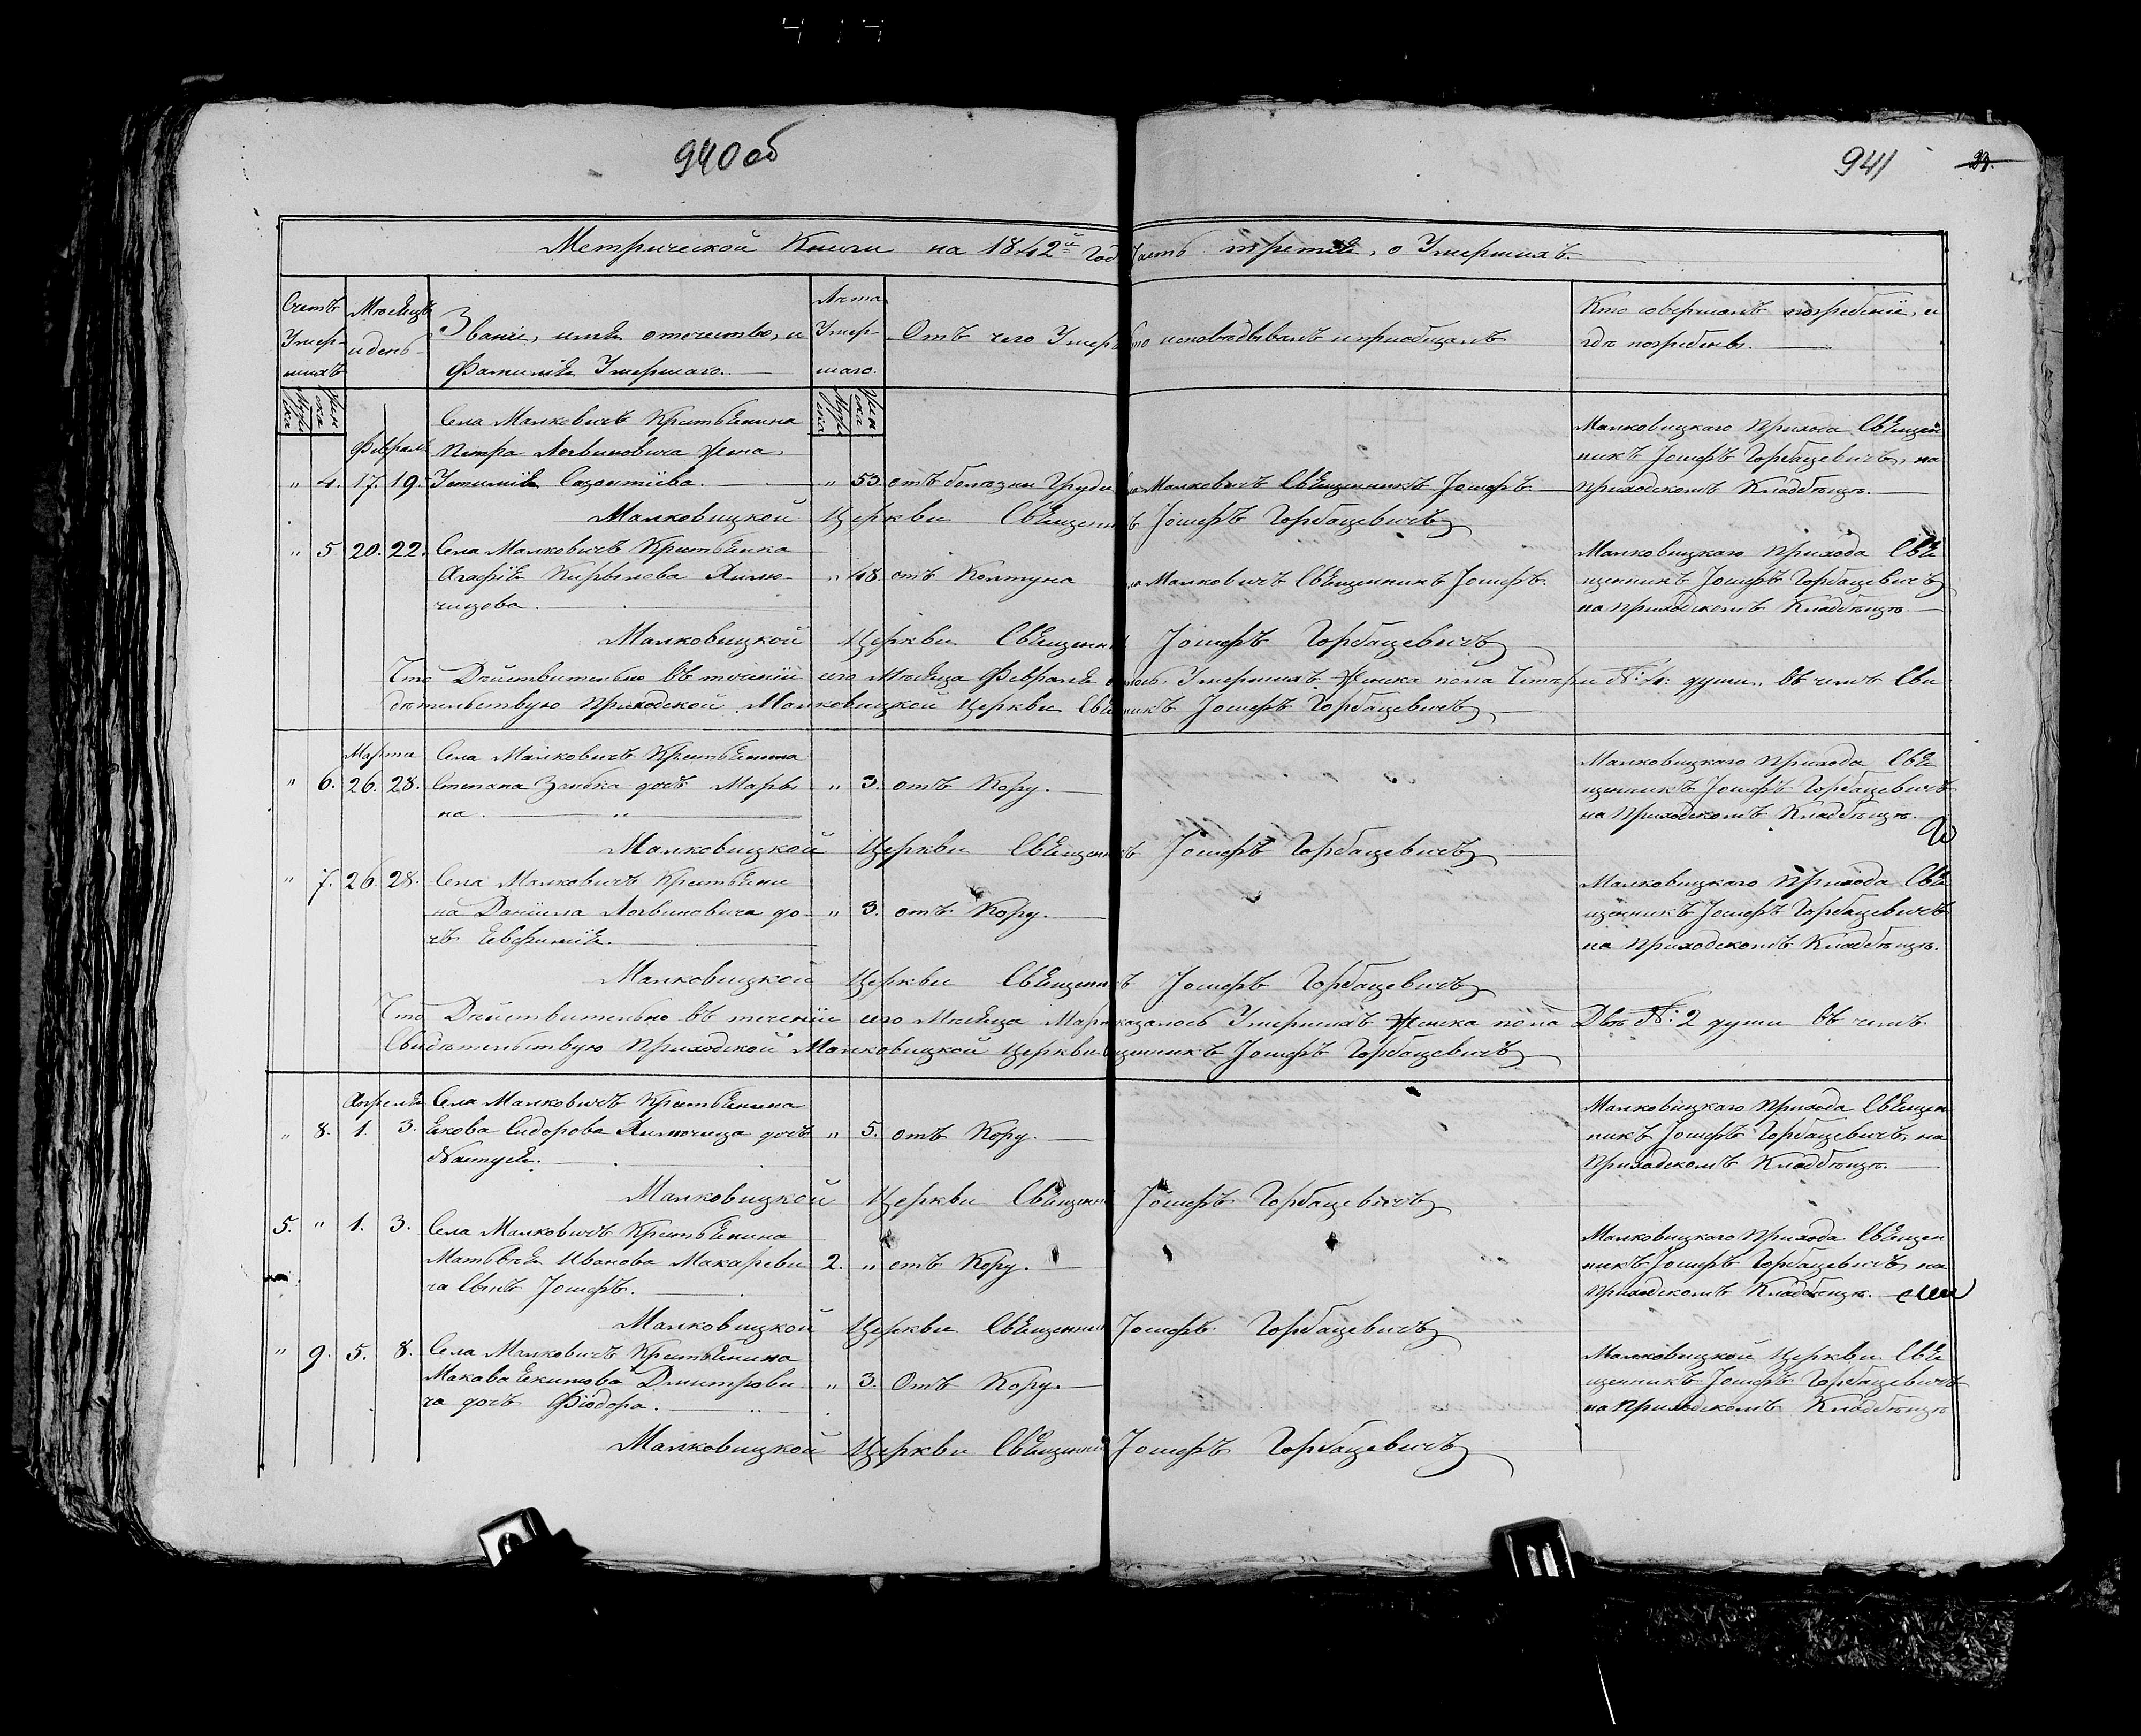 940 об
941
39.
Метрической Книги на 1842й Год Часть третія, о Умершихъ.
Счетъ Умершихъ
Мѣсяцъ и день
Званіе, имя отечество, и Фамилія Умершаго.
Лѣта Умершаго.
Отъ чего Умеръ
Кто исповѣдывалъ и пріобщалъ
Кто совершалъ погребеніе, и гдѣ погребены.
Муже Жен
ска ска
Февраля
Села Малковичъ Крестьянина
Петра Логвиновича жена,
" 4. 17. 19. Устимія Сазонтіева. " 53. отъ болѣзни Груди Малковичъ Священникъ Іосифъ
Малковицкаго Прихода Священ
никъ Іосифъ Горбацевичъ, на
приходскомъ Кладбищѣ.
Малковицкой Церкви Священникъ Іосифъ Горбацевичъ
" 5 20. 22. Села Малковичъ Крестьянка
Агафія Кирылова Хилю-
чицова. " 48. отъ Колтуна Малковичъ Священникъ Іосифъ.
Малковицкаго Прихода Свя
щенникъ Іосифъ Горбацевичъ
на приходскомъ Кладбищѣ
Малковицкой Церкви Священникъ Іосифъ Горбацевичъ
Что Дѣйствительно въ теченіи сего Мѣсяца Февраля Умершихъ Женска пола Четыри №: 4: души, въ чемъ Сви
дѣтельствую Приходской Малковицкой Церкви Священникъ Іосифъ Горбацевичъ
Марта
Села Малковичъ Крестьянина
" 6. 26. 28. Степана Занька дочь Марья
на. " 3. отъ Кору.
Малковицкаго Прихода Свя
щенникъ Іосифъ Горбацевичъ
на Приходскомъ Кладбищѣ.
Малковицкой Церкви Священникъ Іосифъ Горбацевичъ
" 7. 26. 28. Села Малковичъ Крестьяни
на Даніила Логвиновича до- " 3. отъ Кору.
чъ Евфимія.
Малковицкаго Прихода Свя
щенникъ Іосифъ Горбацевичъ
на Приходскомъ Кладбищѣ.
Малковицкой Церкви Священникъ Іосифъ Горбацевичъ
Что Дѣйствительно въ теченіи сего Мѣсяца Марта оказалось Умершихъ Женска пола Двѣ №: 2 души въ чемъ
Свидѣтельствую Приходской Малковицкой Церкви Священникъ Іосифъ Горбацевичъ
Апреля
Села Малковичъ Крестьянина
" 8. 1. 3. Якова Сидорова Хилючица дочь " 5. отъ Кору.
Настуся.
Малковицкаго Прихода Священ
никъ Іосифъ Горбацевичъ, на
Приходскомъ Кладбищѣ.
Малковицкой Церкви Священникъ Іосифъ Горбацевичъ
5. " 1. 3. Села Малковичъ Крестьянина
Матвѣя Иванова Макареви 2. " отъ Кору.
ча Сынъ Іосифъ.
Малковицкаго Прихода Священ
никъ Іосифъ Горбацевичъ, на
Приходскомъ Кладбищѣ.
Малковицкой Церкви Священникъ Іосифъ Горбацевичъ
" 9. 5. 8. Села Малковичъ Крестьянина
Макава Екимова Дмитрови " 3. Отъ Кору.
ча дочь Фіодора.
Малковицкой Церкви Свя
щенникъ Іосифъ Горбацевичъ
на Приходскомъ Кладбищѣ
Малковицкой Церкви Священникъ Іосифъ Горбацевичъ